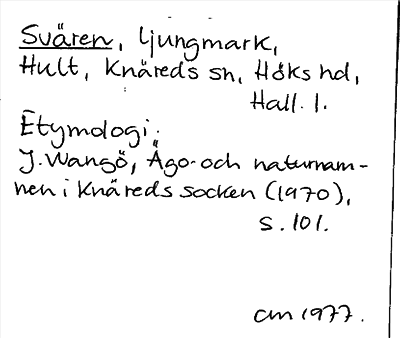 Svären, ljungmark,
Hult, Knäreds sn, Höks hd,
Hall. l.
Etymologi:
J. Wangö, Ägo- och naturnam-
nen i Knäreds socken (1970),
s. 101.
CM 1977.